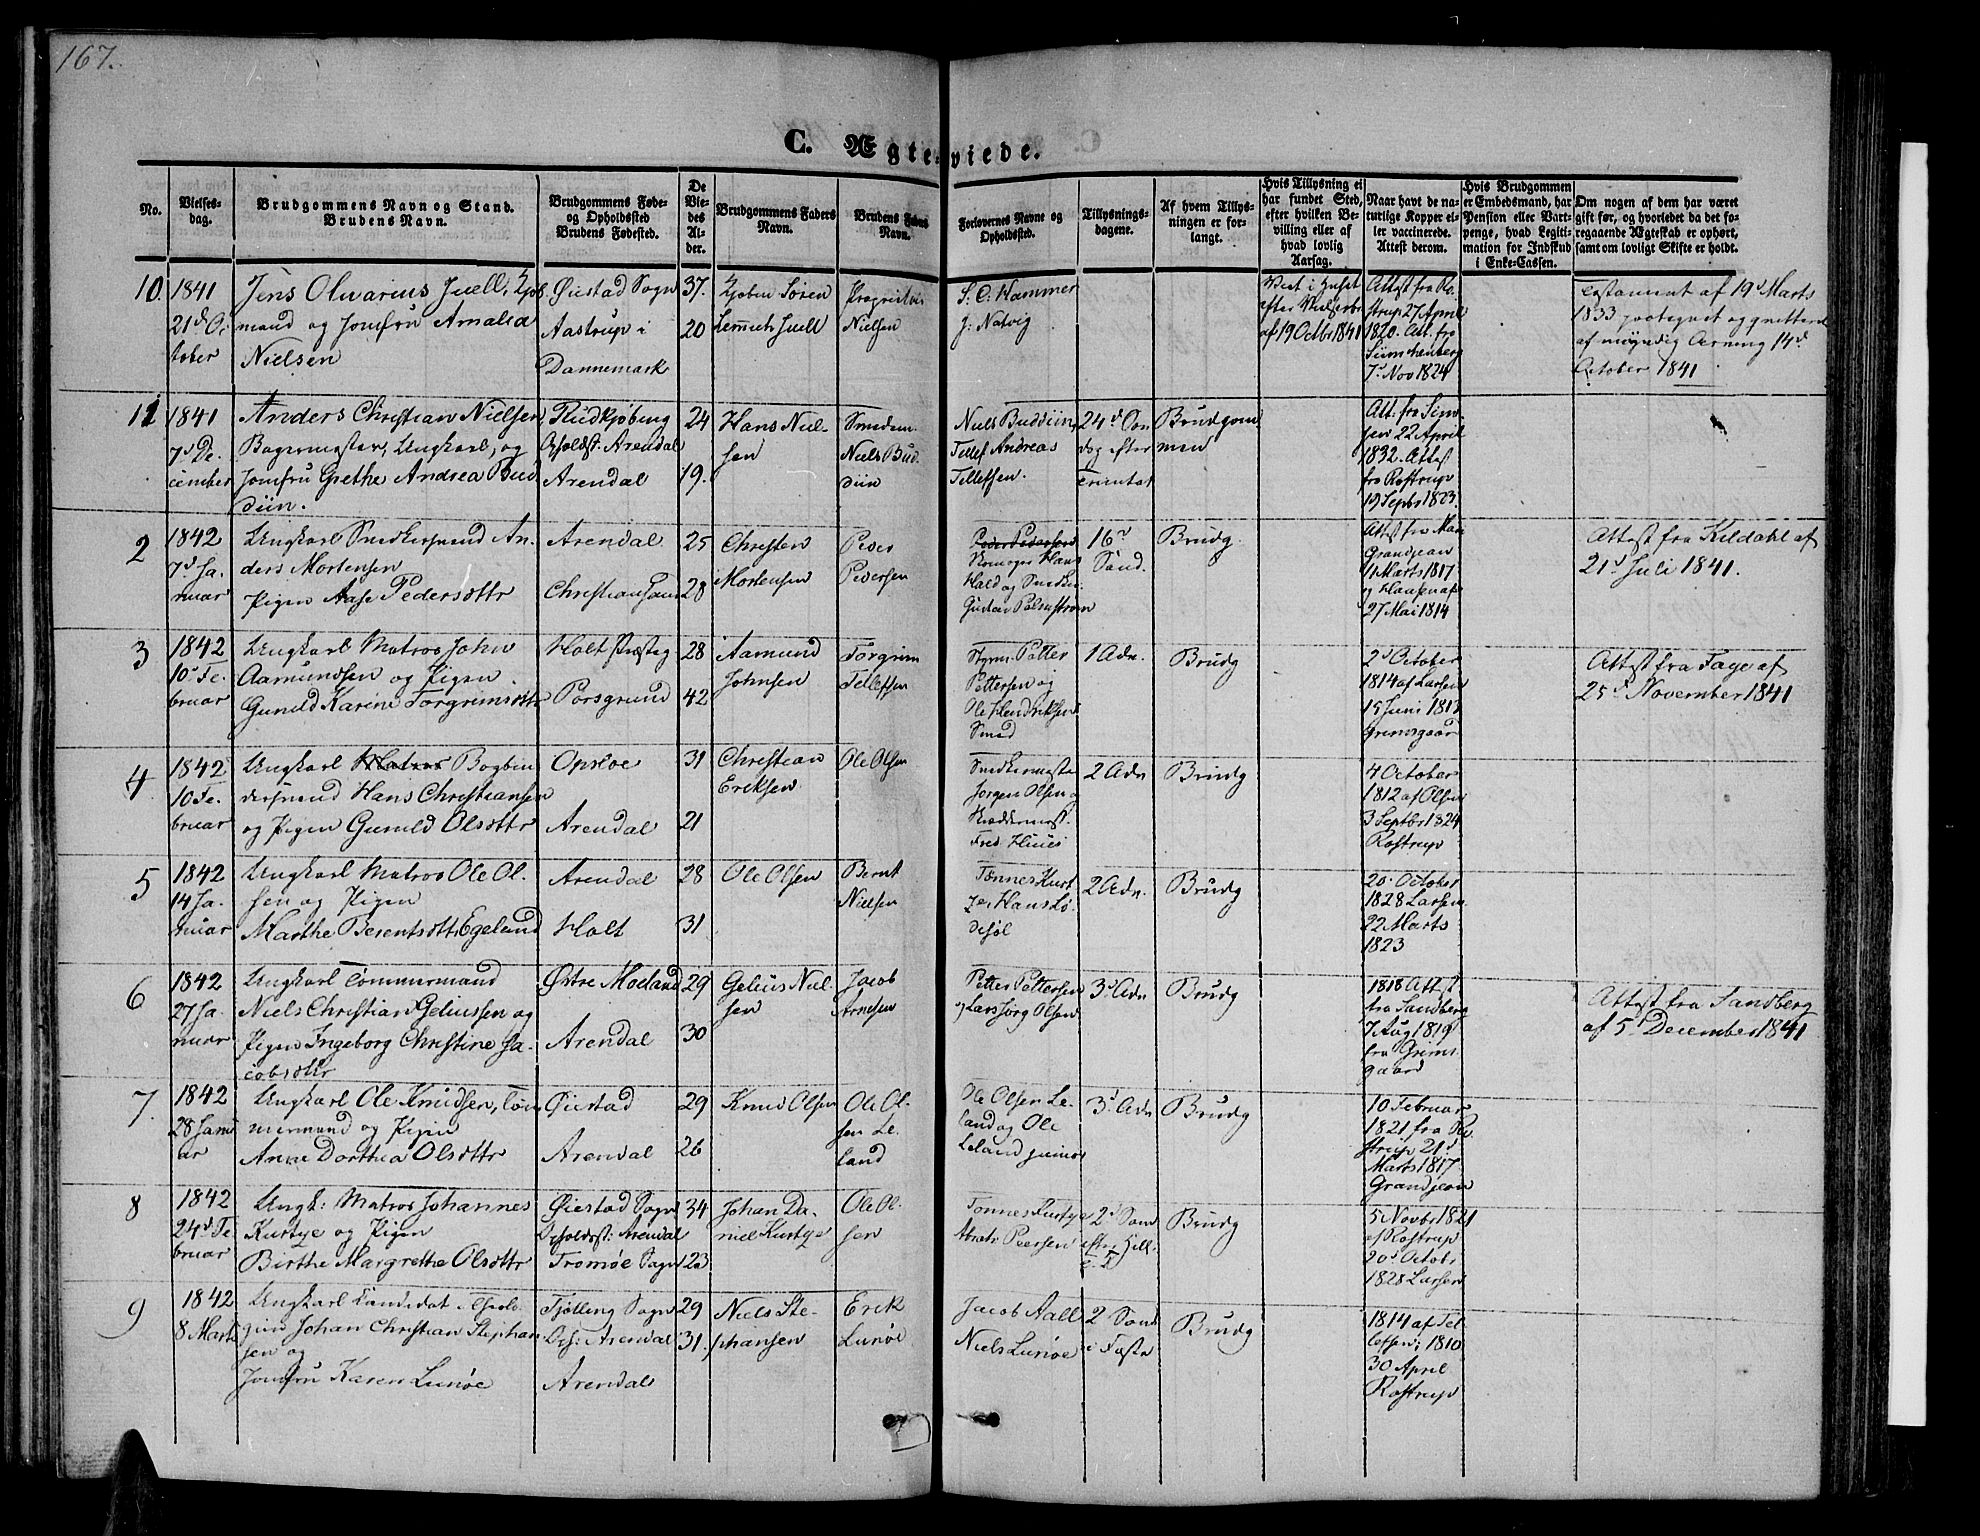 167.
C. Ægteviede.
No.
Vielses-
dag.
Brudgommens Navn og Stand.
Brudens Navn.
Brudgommens Føde-
og Opholdssted
Brudens Fødested.
De
Vie-
des
Al-
der.
Brudgommens Faders
Navn.
Brudens Faders
Navn.
Forlovernes Navne og
Opholdssted.
Tillysnings-
dagene.
Af hvem Tillys-
ningen er for-
langt.
Hvis Tillysning ei
har fundet Sted,
efter hvilken Be-
villing eller af
hvad lovlig
Aarsag.
Naar havt de na-
turlige Kopper el-
ler vaccinerede.
Attest derom.
Hvis Brudgommen
er Embedsmand, har
Pension eller Vart-
penge, hvad Legiti-
mation for Indskud
i Enke-Cassen.
Om nogen af dem har været
gift før, og hvorledet da det fo-
regaaende Ægteskab er ophørt,
samt om lovligt Skifte er holdt.
10. 1841
21d Oc
tober
Jens Olvarius Juell, Kjøb
mand og Jomfru Amalia
Nielsen
Øiestad Sogn
Aastrup i
Dannemark
37.
20
Kjøbm Søren
Juell
Nielsen
S. C. Hammer
J: Natvig
Viet i Huset
efter
af 19 Octbr 1841
Attest fra Ro
strup 27 April
1820. Att. fra
7d Nov 1824
Testament af 19d Marts
1833
af 14d
October 1841
11 1841
7d De.
cember
Anders Christian Nielsen,
Bagermester, Ungkarl, og
Jomfru Grethe Andrea Bud
diin.
Rudkjøbing
Opholdst: Arendal
Arendal
24
19.
Hans Niel-
sen
Smedem.
Niels Bud
diin
Niels Buddiin,
Tellef Andreas
Tellefsen.
24d Søn
dag efter
Trinitat
Brudgom
men
Att: fra Sim
sen 22 April
1832. Attest
fra Rostrup
19 Septbr 1823
2 1842
7d Ja.
nuar
Ungkarl Snedkersvend An.
ders Mortensen
Pigen Aase Pedersdttr
Arendal
Christiansand
25
28
Christen
Mortensen
Peder
Pedersen
Peder Pedersen
Hans
Hald og Snedker
Gustav Palmstrøm
16d
Sønd.
Brudg.
Attest fra
Grandjean
11 Marts 1817
27 Mai 1814
Attest fra Kildahl af
21d Juli 1841.
3 1842
10d Fe.
bruar
Ungkarl Matros John
Aamundsen og Pigen
Gunild Karine Torgrimsdttr
Holt Præsteg
Porsgrund
28
42
Aamund
Johnsen
Torgrim
Tellefsen
Styrm. Petter
Pettersen og
Ole Hendriksen
Smed
1 Adv.
Brudg
2d October
1814 af Larsen
15 Juni 1813
Grimsgaar
Attest fra Faye af
25d November 1841
4 1842
10 Fe.
bruar
Ungkarl Matros Bogbin
dersvend Hans Christiansen
og Pigen Gunild Olsdttr
Opsloe
Arendal
31
21
Christian
Eriksen
Ole Olsen
Snedkermester
Jørgen Olsen og
Skreddermest.
Fred
2 Adv
Brudg
4 October
1812 af Olsen
3 Septbr 1824
Rostrup
5 1842
14 Ja.
nuar
Ungkarl Matros Ole Ol.
sen og Pigen
Marthe Berentsdttr Egeland
Arendal
Holt
28
31
Ole Olsen
Bernt
Nielsen
Tønnes Kurt
ye, Hans Lø
desøl
2 Adv.
Brudg
20 October
1828 Larsen
22 Marts
1823
6 1842
27 Ja.
nuar
Ungkarl Tømmermand
Niels Christian Geliussen og
Pigen Ingeborg Christine Ja.
cobsdttr
Østre Moeland
Arendal
29
30
Gelius Niel
sen
Jacob
Arnesen
Petter Pettersen
og Lars Jørg Olsen
3d Adv
Brudg
1818 Attest
fra Sandberg
7 Aug 1819
fra Grims
gaard
Attest fra Sandberg
af 5d December 1841
7. 1842
28 Janu
ar
Ungkarl Ole Knudsen, Tøm
mermand og Pigen
Anne Dorthea Olsdttr
Øiestad
Arendal
29
26
Knud Olsen
Ole Ol.
sen Le.
land
Ole Olsen Le.
land og Ole
Leland junior
3d Adv
Brudg
10 Februar
1821 fra Ro.
strup 21d
Marts 1817
Grandjean
8 1842
24d Fe
bruar
Ungk: Matros Johannes
Kurtye og Pigen
Birthe Margrethe Olsdttr
Øiestad Sogn
Opholdst: Arendal
Tromøe Sogn
34
23
Johan Da.
niel Kurtye
Ole Ol.
sen
Tønnes Kurtye
Peersen
2d Søn
efter Hell.
3 K
Brudg
5 Novbr 1821
af Rostrup
20d Octobr
1828 Larsen
9 1842
8 Marts
Ungkarl Candidat
Johan Christian Stephan
sen og
Jomfru Karen Lunøe
Tjølling Sogn
Op: Arendal
Arendal
29
31.
Niels Ste-
phansen
Erik
Lunøe
Jacob Aall
Niels Lunøe
2 Sønd
i Faste
Brudg
1814 af Tel
lefsen; 1810
30 April
Rostrup